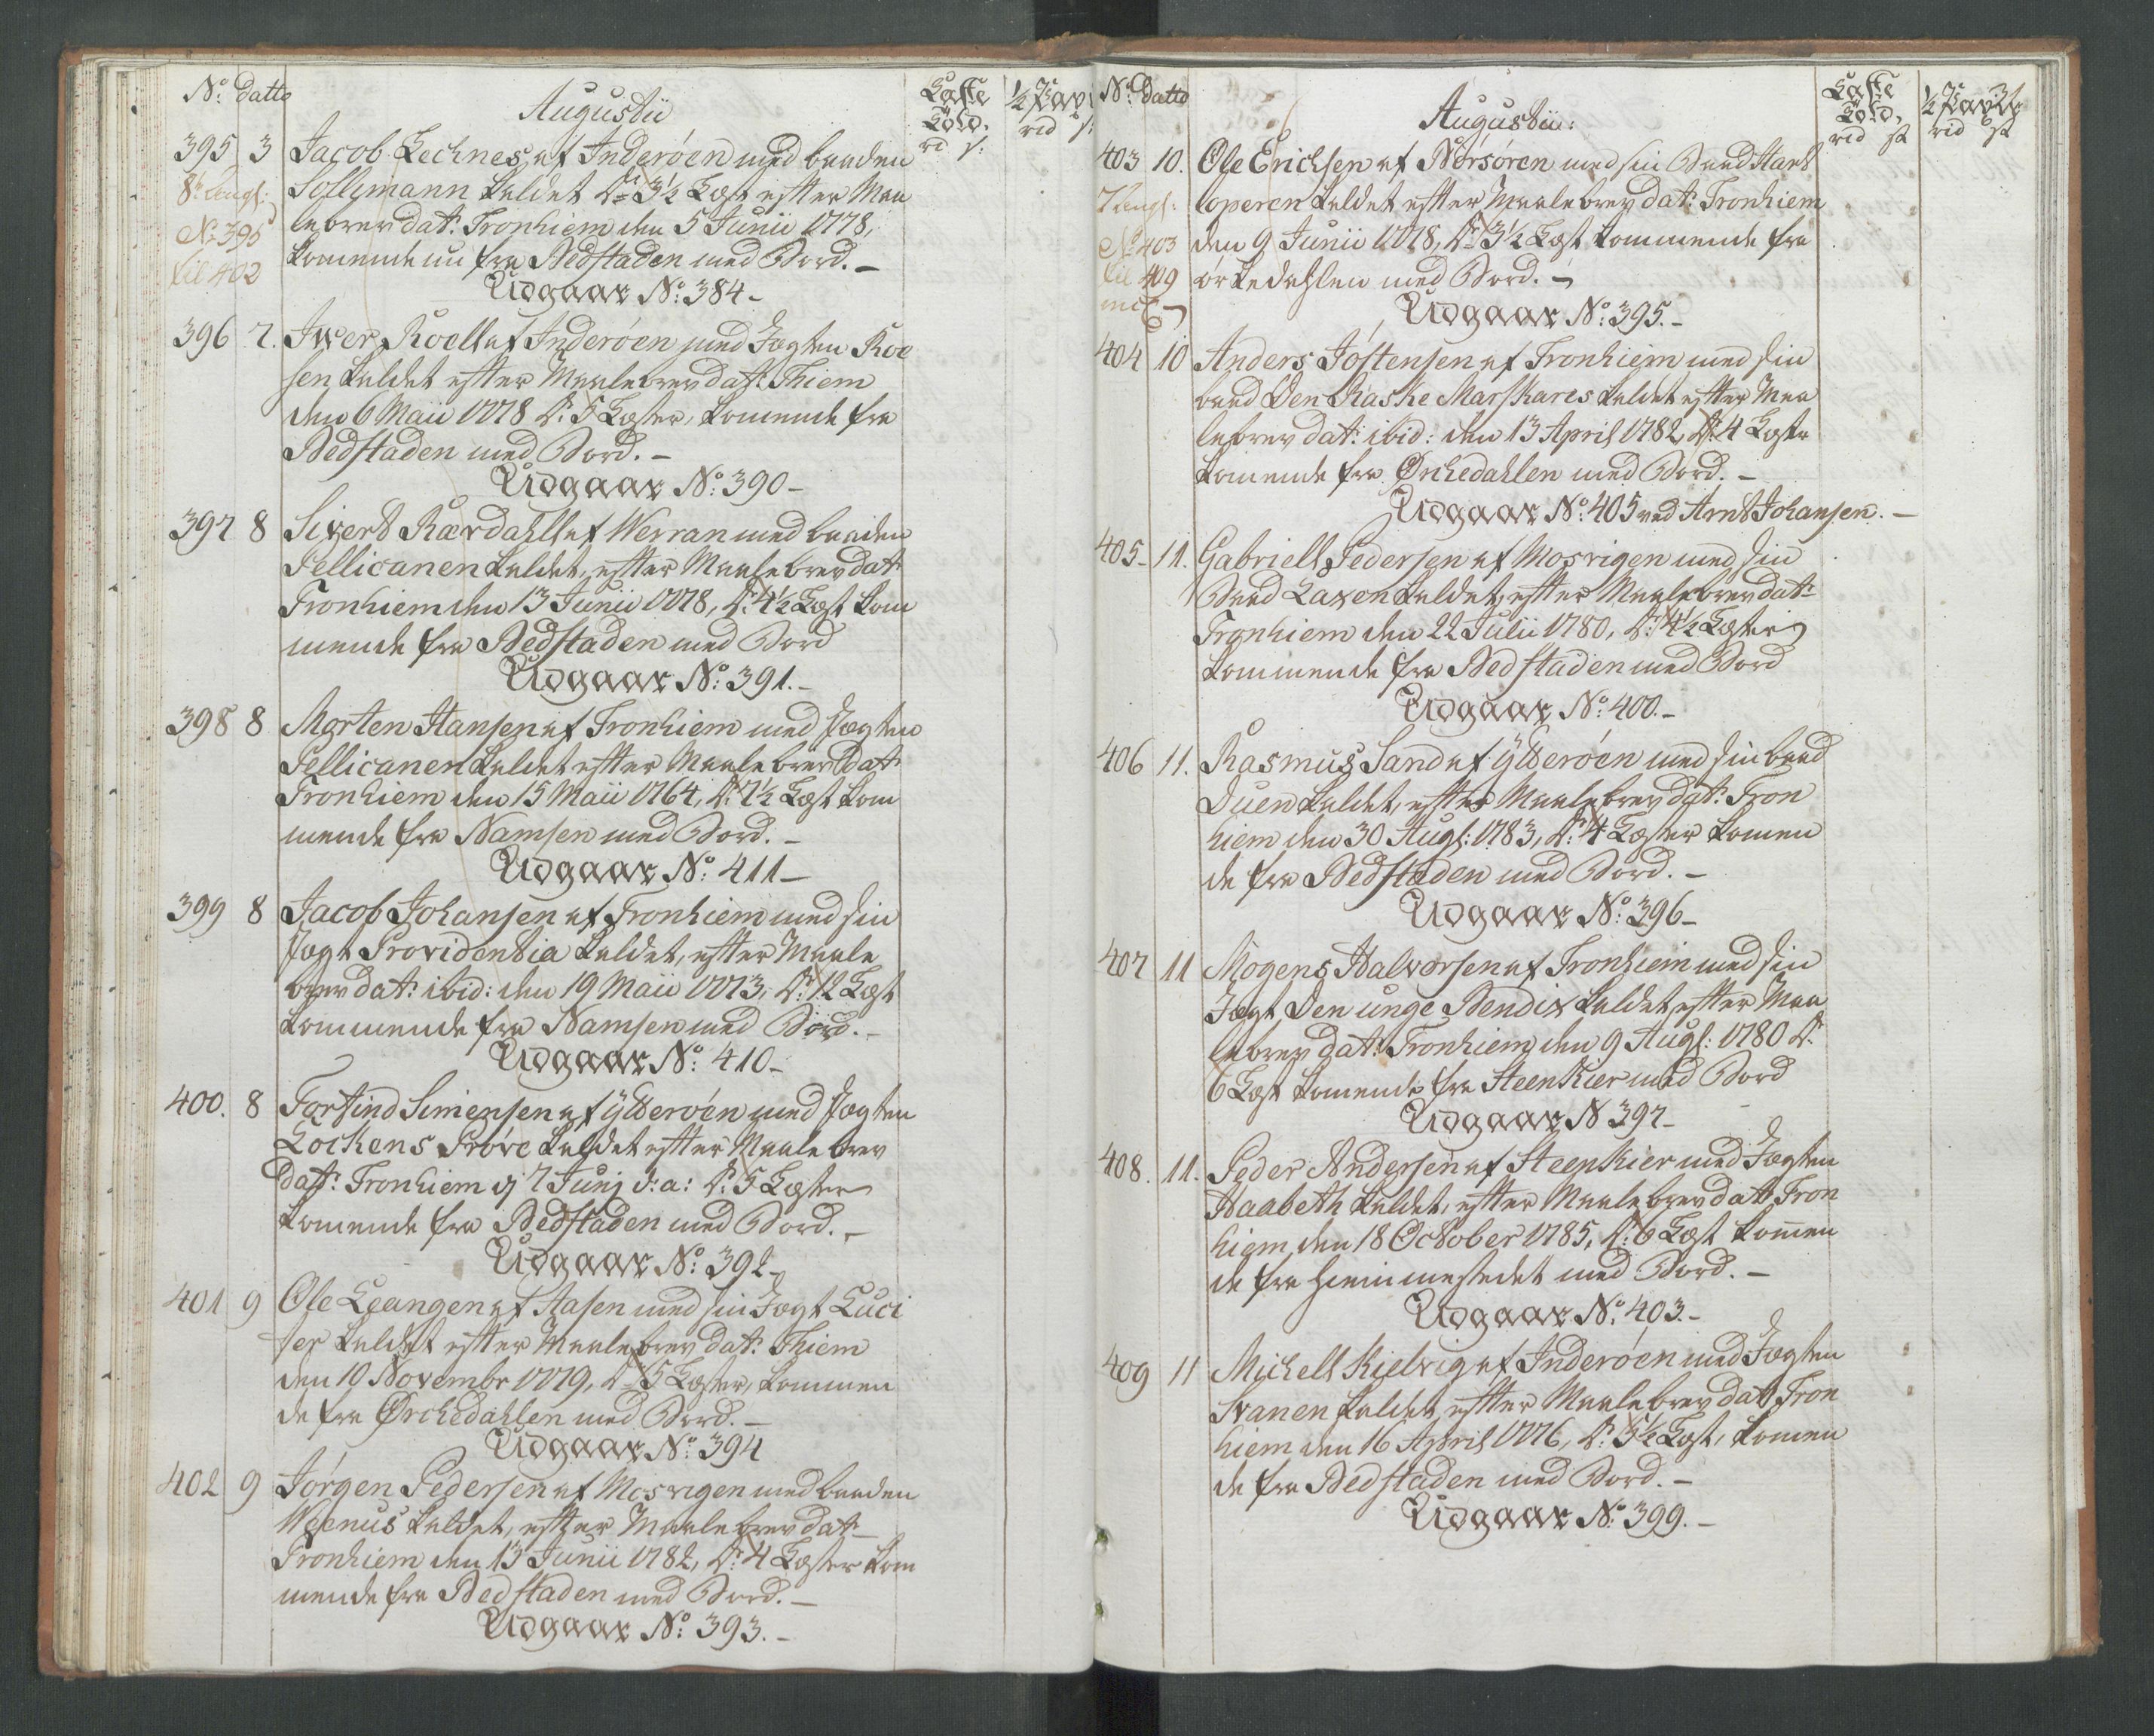 No: datto
Augustii
Læste
Told.
rd s:
½ pC
rid s:
395 3 Jacob Lechnes af Inderöen med baaden
8t Augl: Sollemann kaldet Dr: 3½ Læst efter Maa
No 395 lebrev dat: Tronhiem den 5 Junii 1778,
til 402 kommende nu fra Bedstaden med Bord. –
Udgaar No: 384 –
396 7. Iver Roell af Inderöen med Jagten Roe
sen kaldet efter Maalebrev dat: Thiem
den 6 Maii 1778 Dr: 5 Læster, komende fra
Bedstaden med Bord. –
Udgaar No: 390 –
397 8 Sivert Kærdahll af Werran med baaden
Pellicanen kaldet, efter Maalebrev dat:
Tronhiem den 13 Junii 1778, Dr: 4½ Læst kom
mende fra Bedstaden med Bord
Udgaar No: 391. –
398 8 Morten Hansen af Tronhiem med Jagten
Pellicanen kaldet efter Maalebrev dat:
Tronhiem den 15 Maii 1764, Dr: 7½ Læst kom
mende fra Namsen med Bord. –
Udgaar No: 411 –
399 8 Jacob Johansen af Tronhiem med sin
Jagt Providentia kaldet, efter Maale
brev dat: ibid: den 19 Maii 1773, Dr: 12 Læst
kommende fra Namsen med Bord. –
Udgaar No: 410 –
400. 8 Torfind Simensen af Ytteröen med Jagten
Lochens Pröve kaldet efter Maalebrev
dat: Tronhiem dj 7 Junj d: a: Dr: 5 Læster
komende fra Bedstaden med Bord. –
Udgaar No: 392 –
401 9 Ole Leangen af Aasen med sin Jagt Luci
fer kaldet efter Maalebrev dat: Thiem
den 10 Novembr 1779, Dr: 5 Læster, kommen
de fra Örchedahlen med Bord. –
Udgaar No: 394
402 9 Jörgen Pedersen af Mosvigen med baaden
Weenus kaldet, efter Maalebrev dat:
Tronhiem den 13 Junii 1782, Dr: 4 Læster kom
mende fra Bedstaden med Bord. –
Udgaar No: 393. –
No: datto
Augustii:
Læste
Told.
rid s
½ pC
rid s
403 10. Ole Erichsen af Norsören med sin Baad Hart
7 Augl: loperen kaldet efter Maalebrev dat: Tronhiem
No 403 den 9 Junii 1778, Dr: 3½ Læst kommende fra
til 409 örkedahlen med Bord. –
incl
Udgaar No: 395. –
404 10 Anders Jöstensen af Tronhiem med sin
baad Den Raske Marskares kaldet efter Maa
lebrev dat: ibid: den 13 April 1782, Dr: 4 Læste
komende fra Örchedahlen med Bord. –
Udgaar No: 405 ved Arnt Johansen. –
405 – 11. Gabriell Pedersen af Mosvigen med sin
Baad Laxen kaldet, efter Maalebrev dat:
Tronhiem den 22 Julii 1780, Dr: 4½ Læster
kommende fra Bedstaden med Bord
Udgaar No: 400. –
406 11. Rasmus Sand af Ytteröen med sin baad
Duen kaldet, efter Maalebrev dat: Tron
hiem den 30 Augl: 1783, Dr: 4 Læster komen
de fra Bedstaden med Bord. –
Udgaar No: 396 –
407 11 Mogens Halvorsen af Tronhiem med sin
Jagt Den unge Bendix kaldet efter Maa
lebrev dat: Tronhiem den 9 Augl: 1780 Dr:
6 Læst komende fra Steenkier med Bord
Udgaar N 397 –
408. 11. Peder Andersen af Steenkier med Jagten
Haabeth kaldet, efter Maalebrev dat: Tron
hiem den 18 October 1785, Dr: 6 Læst komen
de fra hiemmestedet med Bord. –
Udgaar No: 403. –
409 11 Michell Kielvig af Inderöen med Jagten
Svanen kaldet, efter Maalebrev dat Tron
hiem den 16 April 1776, Dr: 5½ Læst, komen
de fra Bedstaden med Bord. –
Udgaar No: 399. –